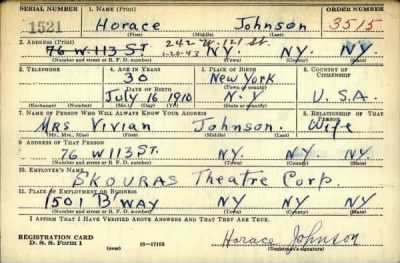 SERIAL NUMBER 1. NAME (Print) ORDER NUMBER
1521 Horace Johnson 3515
(First) (Middle) (Last)
2. ADDRESS (Print) 242 W. 121 St.
76 W. 113 ST 1-20-43 N.Y. N.Y. N.Y.
(Number and street or R. F. D. number) (Town) (County) (State)
3. TELEPHONE 4. AGE IN YEARS 5. PLACE OF BIRTH 6. COUNTRY OF CITIZENSHIP
30 New York
DATE OF BIRTH (Town or county)
July 16 1910 N.Y U.S.A.
(Exchange) (Number) (Mo.) (Day) (Yr.) (State or country)
7. NAME OF PERSON WHO WILL ALWAYS KNOW YOUR ADDRESS 8. RELATIONSHIP OF THAT PERSON
MRS Vivian Johnson. Wife
(Mr., Mrs., Miss) (First) (Middle) (Last)
9. ADDRESS OF THAT PERSON
76 W 113 ST. N.Y. N.Y. N.Y.
(Number and street or R. F. D. number) (Town) (County) (State)
10. EMPLOYER'S NAME
SKOURAS Theatre Corp.
11. PLACE OF EMPLOYMENT OR BUSINESS
1501 B'WAY N.Y. N.Y. N.Y.
(Number and street or R. F. D. number) (Town) (County) (State)
I AFFIRM THAT I HAVE VERIFIED ABOVE ANSWERS AND THAT THEY ARE TRUE.
REGISTRATION CARD
D. S. S. Form 1 (over) 16-17105
Horace Johnson
(Registrant's signature)